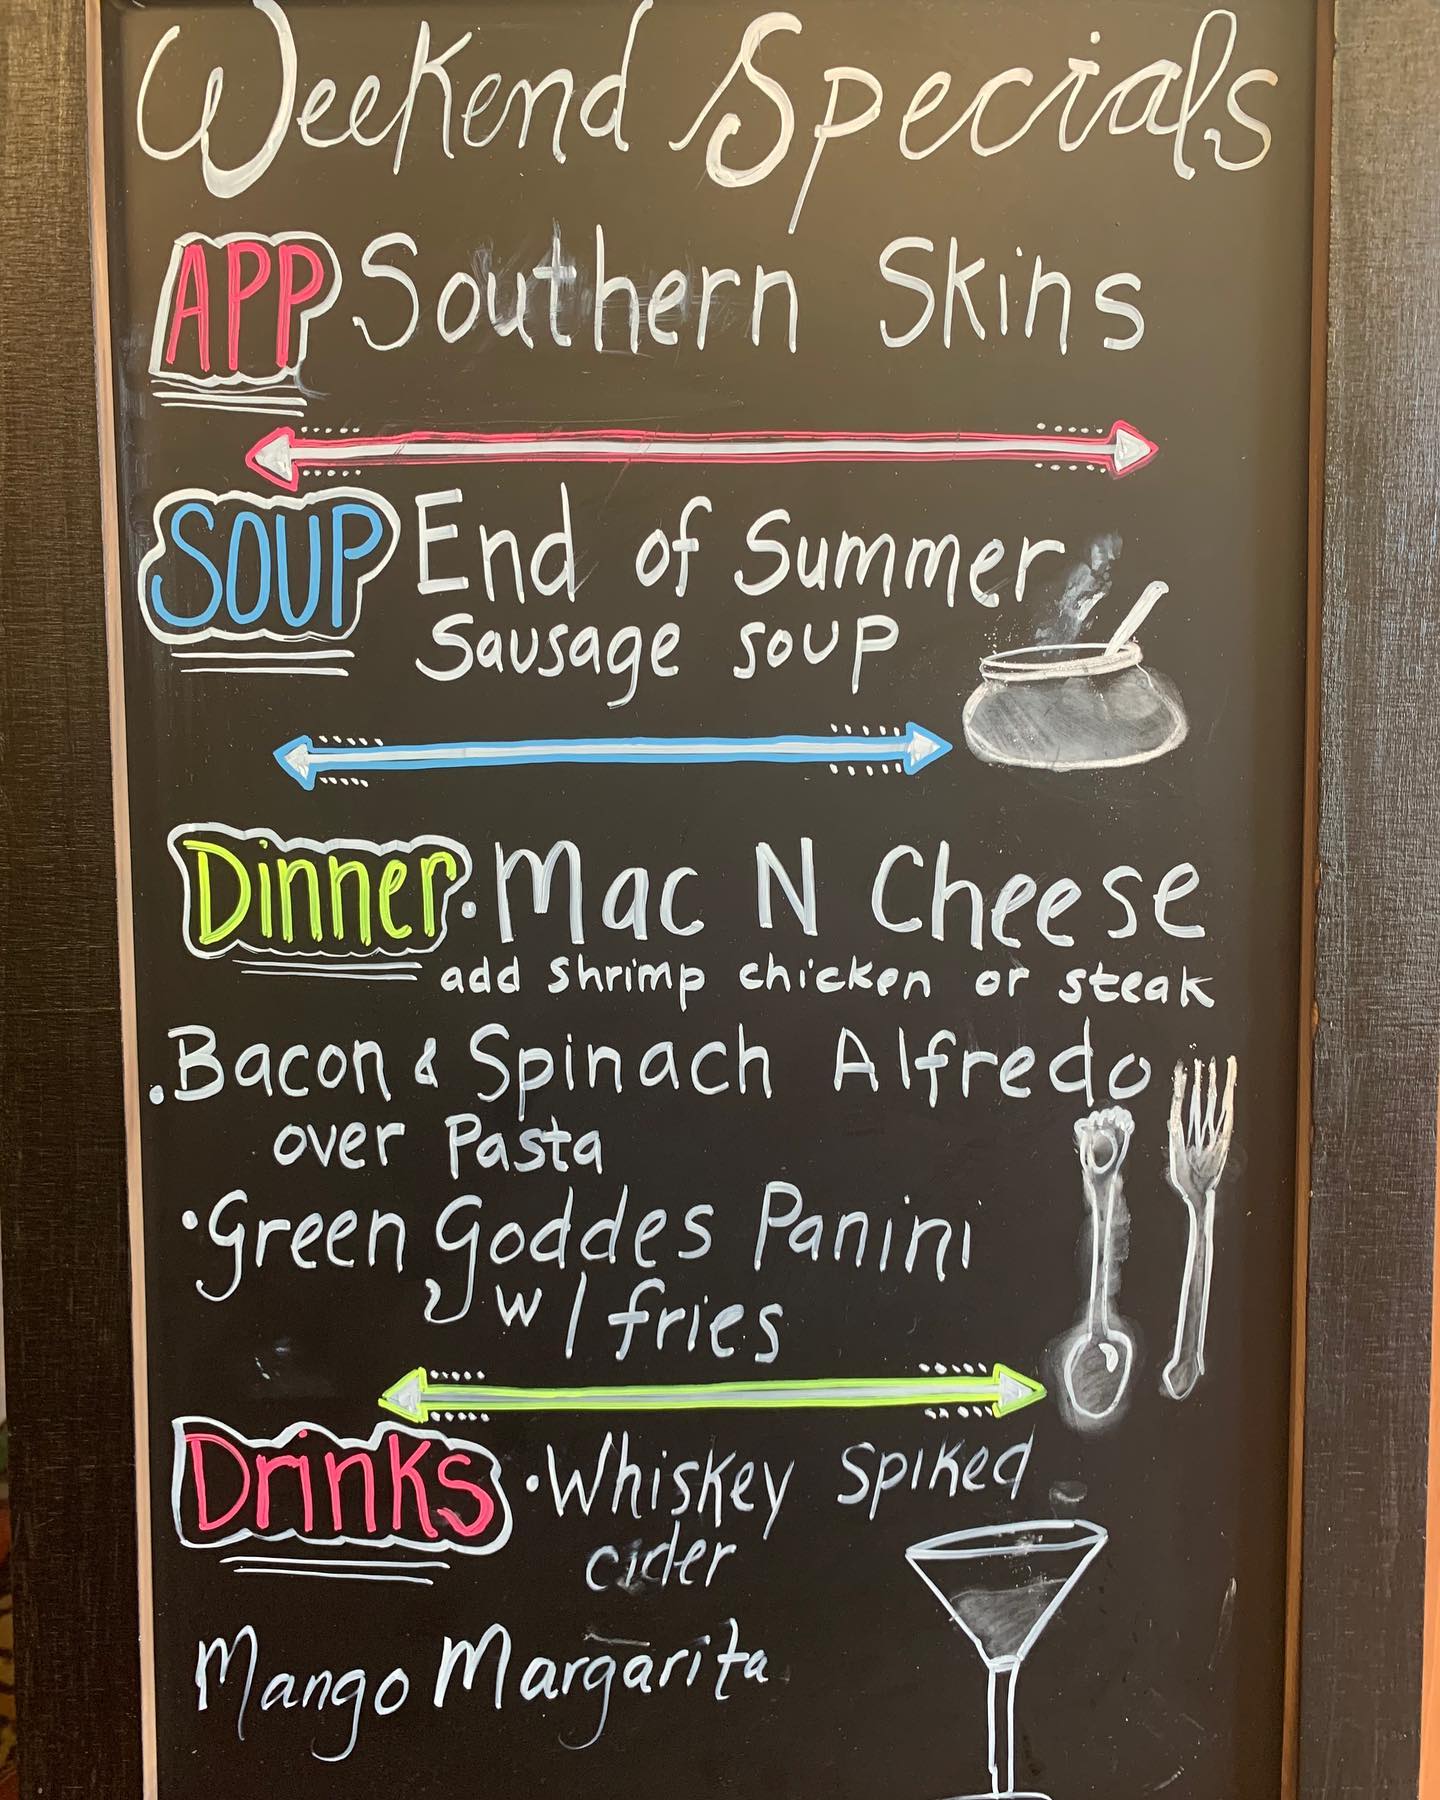 Weekend Specials
APP Southern Skins
SOUP End of Summer
Sausage soup
Dinner · Mac N Cheese
add shrimp chicken or steak
. Bacon & Spinach Alfredo
over Pasta
· Green Goddes Panini
w/ fries
Drinks · Whiskey spiked
cider
Mango Margarita